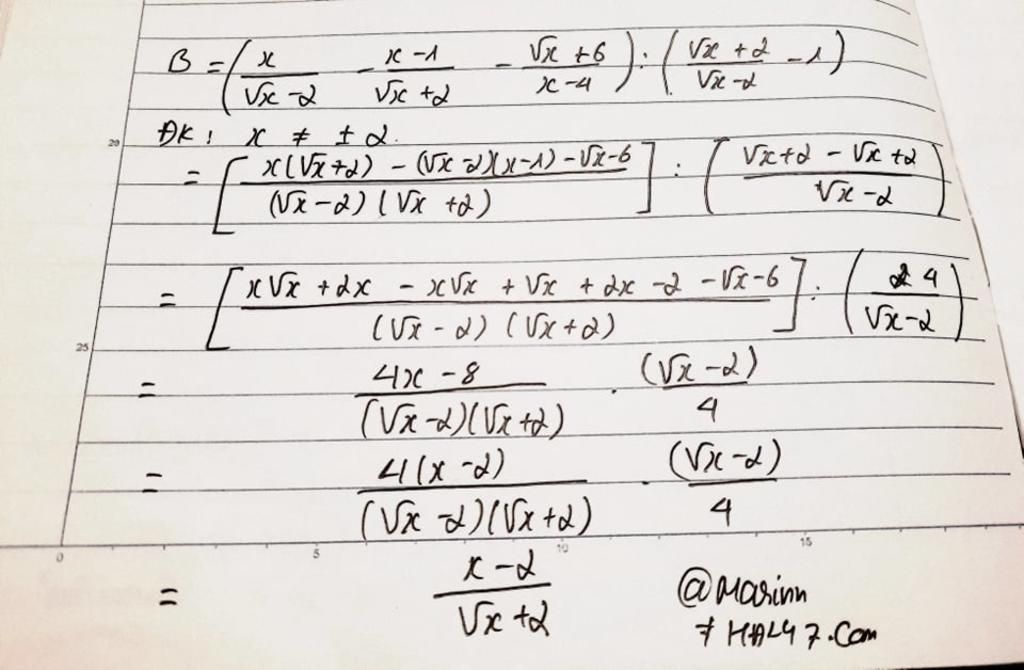 B = (x/(√x -2) - (x-1)/(√x +2) - (√x +6)/(x-4)) : ((√x +2)/(√x -2) -1)
20
ĐK: x ≠ ±2.
= [(x(√x+2) - (√x -2)(x-1) -√x-6)/((√x-2)(√x +2))] : ((√x+2 - √x +2)/(√x -2))
= [(x√x +2x - x√x + √x + 2x -2 -√x-6)/((√x -2)(√x+2))] : (4/(√x-2))
25
= (4x -8)/((√x-2)(√x+2)) . (√x -2)/4
= 4(x -2)/((√x -2)(√x+2)) . (√x -2)/4
0 5 10 15
= (x-2)/(√x +2)
@Marinn
7HAL47.com